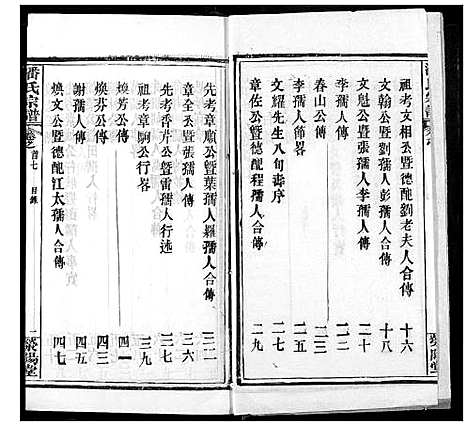 祖考文相公暨德配劉老夫人合傳 十六
文翰公暨劉孺人彭孺人合傳 十八
文魁公暨德配文李孺人傳 二十
李孺人傳 二二
春山公傳 二三
李孺人節畧 二五
文耀先生八旬壽序 二七
章佐公暨德配程孺人合傳 二九
先考章順公暨葉孺人羅孺人合傳 三二
章全公暨張孺人合傳 三六
先考香芹公暨雷孺人行述 三七
祖考章駒公行畧 三九
煥芳公傳 四一
煥芬公傳 四四
謝孺人傳 四五
煥文公暨德配江太孺人合傳 四七
潘氏宗譜
卷之首七 目錄 一
滎陽堂